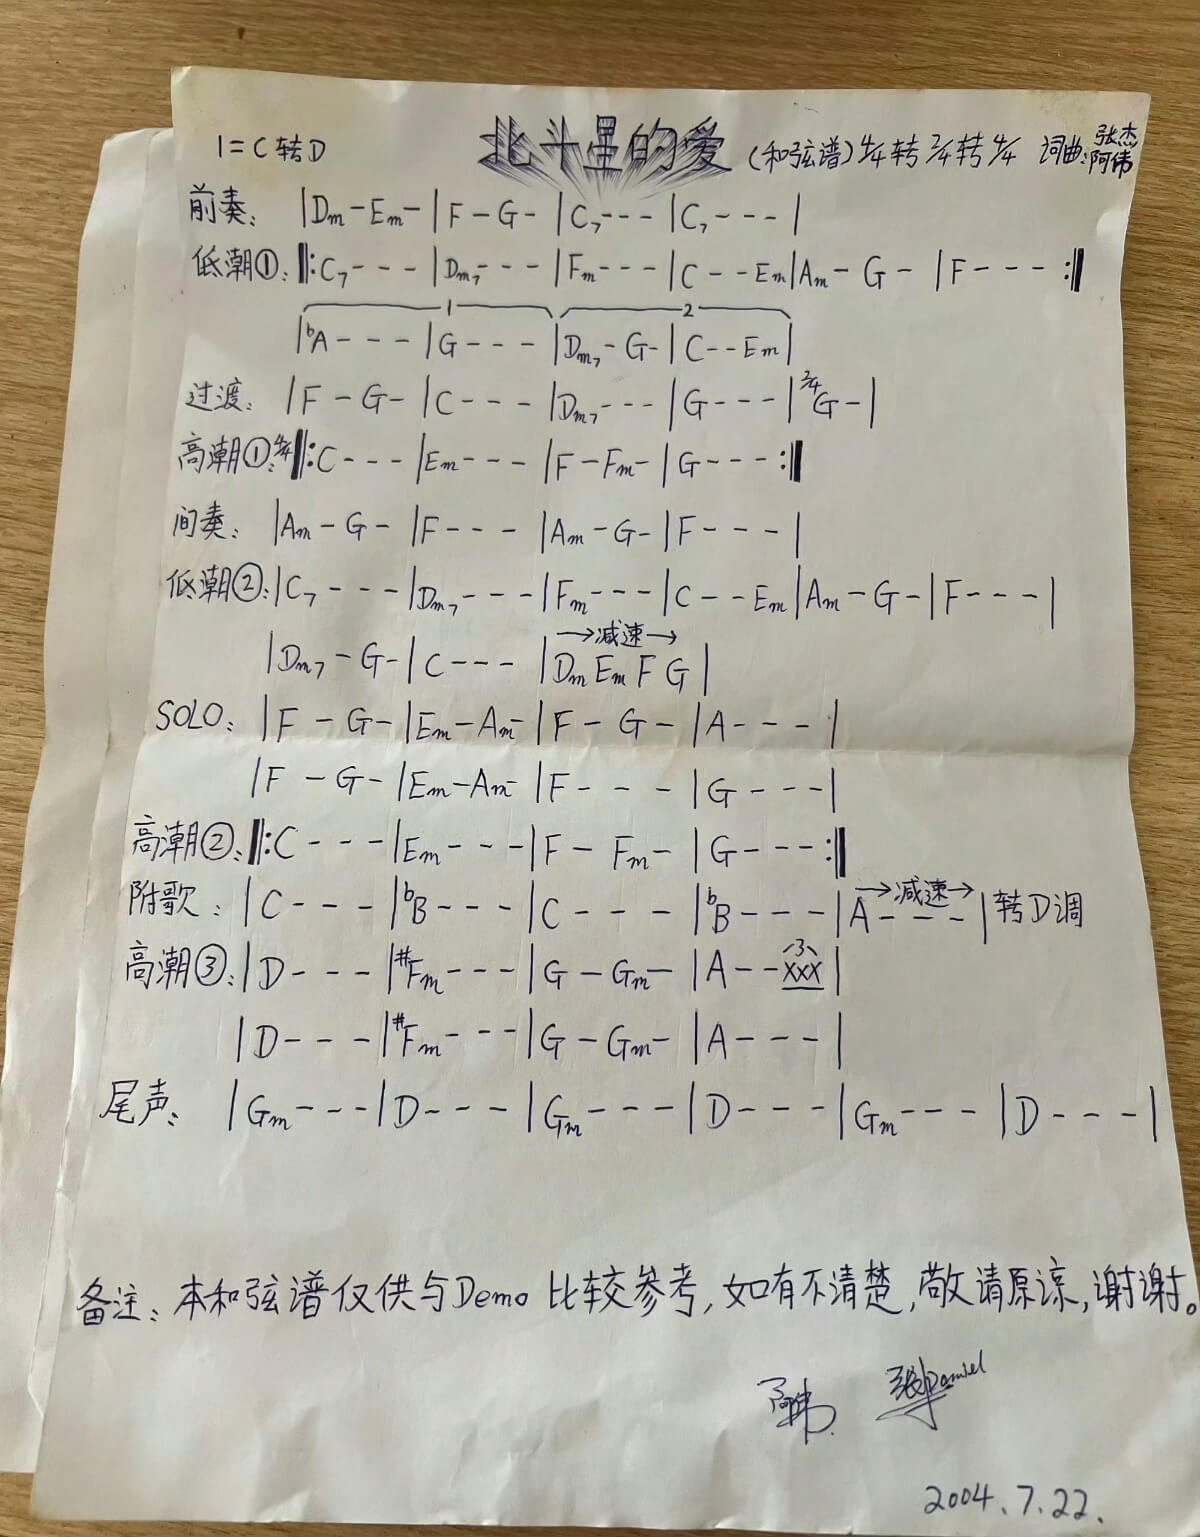 1=C转D 北斗星的爱 (和弦谱) 4/4转2/4转4/4 词曲: 张杰 阿伟
前奏: |Dm-Em-|F-G-|C7---|C7---|
低潮①: ‖:C7---|Dm7---|Fm---|C--Em|Am-G-|F---:‖
1 2
|bA---|G---|Dm7-G-|C--Em|
过渡: |F-G-|C---|Dm7---|G---|2/4 G-|
高潮①: 4/4 ‖:C---|Em---|F-Fm-|G---:‖
间奏: |Am-G-|F---|Am-G-|F---|
低潮②: |C7---|Dm7---|Fm---|C--Em|Am-G-|F---|
→减速→
|Dm7-G-|C---|Dm Em F G|
SOLO: |F-G-|Em-Am-|F-G-|A---|
|F-G-|Em-Am-|F---|G---|
高潮②: ‖:C---|Em---|F-Fm-|G---:‖
附歌: |C---|bB---|C---|bB---|→减速→ A---|转D调
高潮③: |D---|#Fm---|G-Gm-|A--3 XXX|
|D---|#Fm---|G-Gm-|A---|
尾声: |Gm---|D---|Gm---|D---|Gm---|D---|
备注: 本和弦谱仅供与Demo比较参考,如有不清楚,敬请原谅,谢谢。
阿伟 Daniel
2004.7.22.